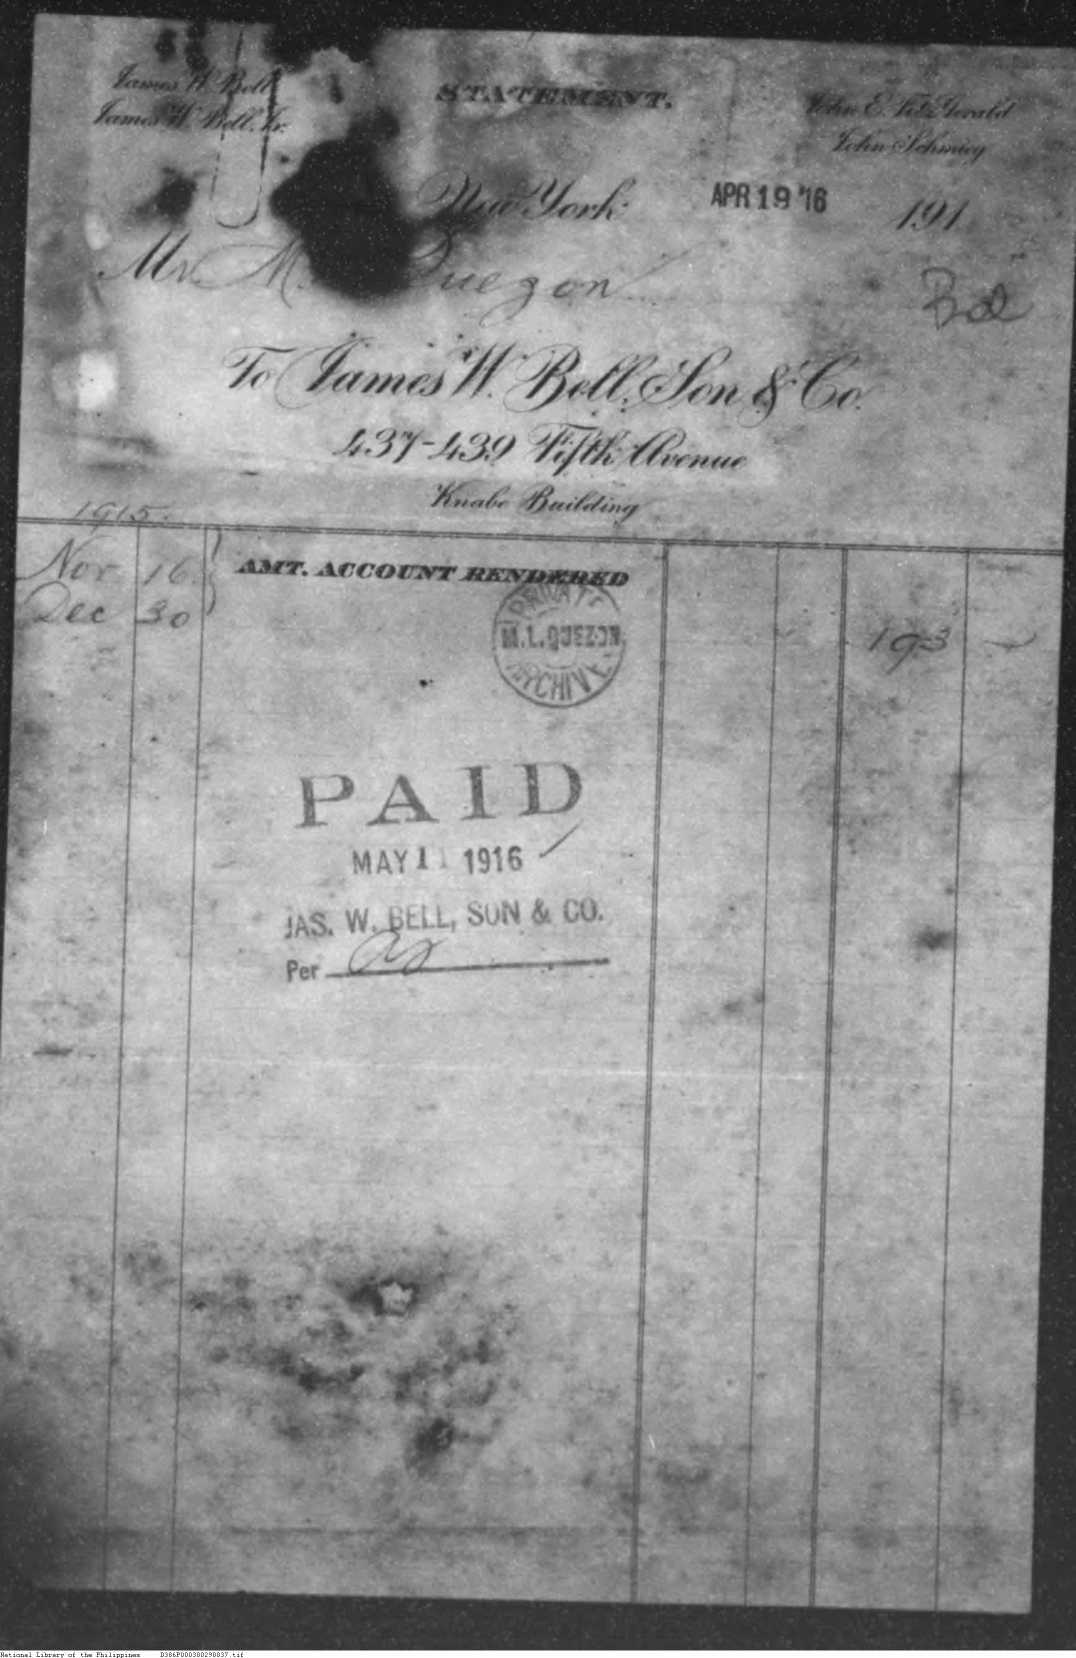 James W. Bell
James W. Bell, Jr.
STATEMENT.
John E. FitzGerald
John Schmieg
New York APR 19 '16 191
Mr. M. Quezon
Bal
To James W. Bell, Son & Co.
437-439 Fifth Avenue
Knabe Building
1915.
Nov 16 AMT. ACCOUNT RENDERED
Dec 30 193 —
PRIVATE
M.L. QUEZON
ARCHIVE
PAID
MAY 11 1916
JAS. W. BELL, SON & CO.
Per
National Library of the Philippines D386P000300290037.tif